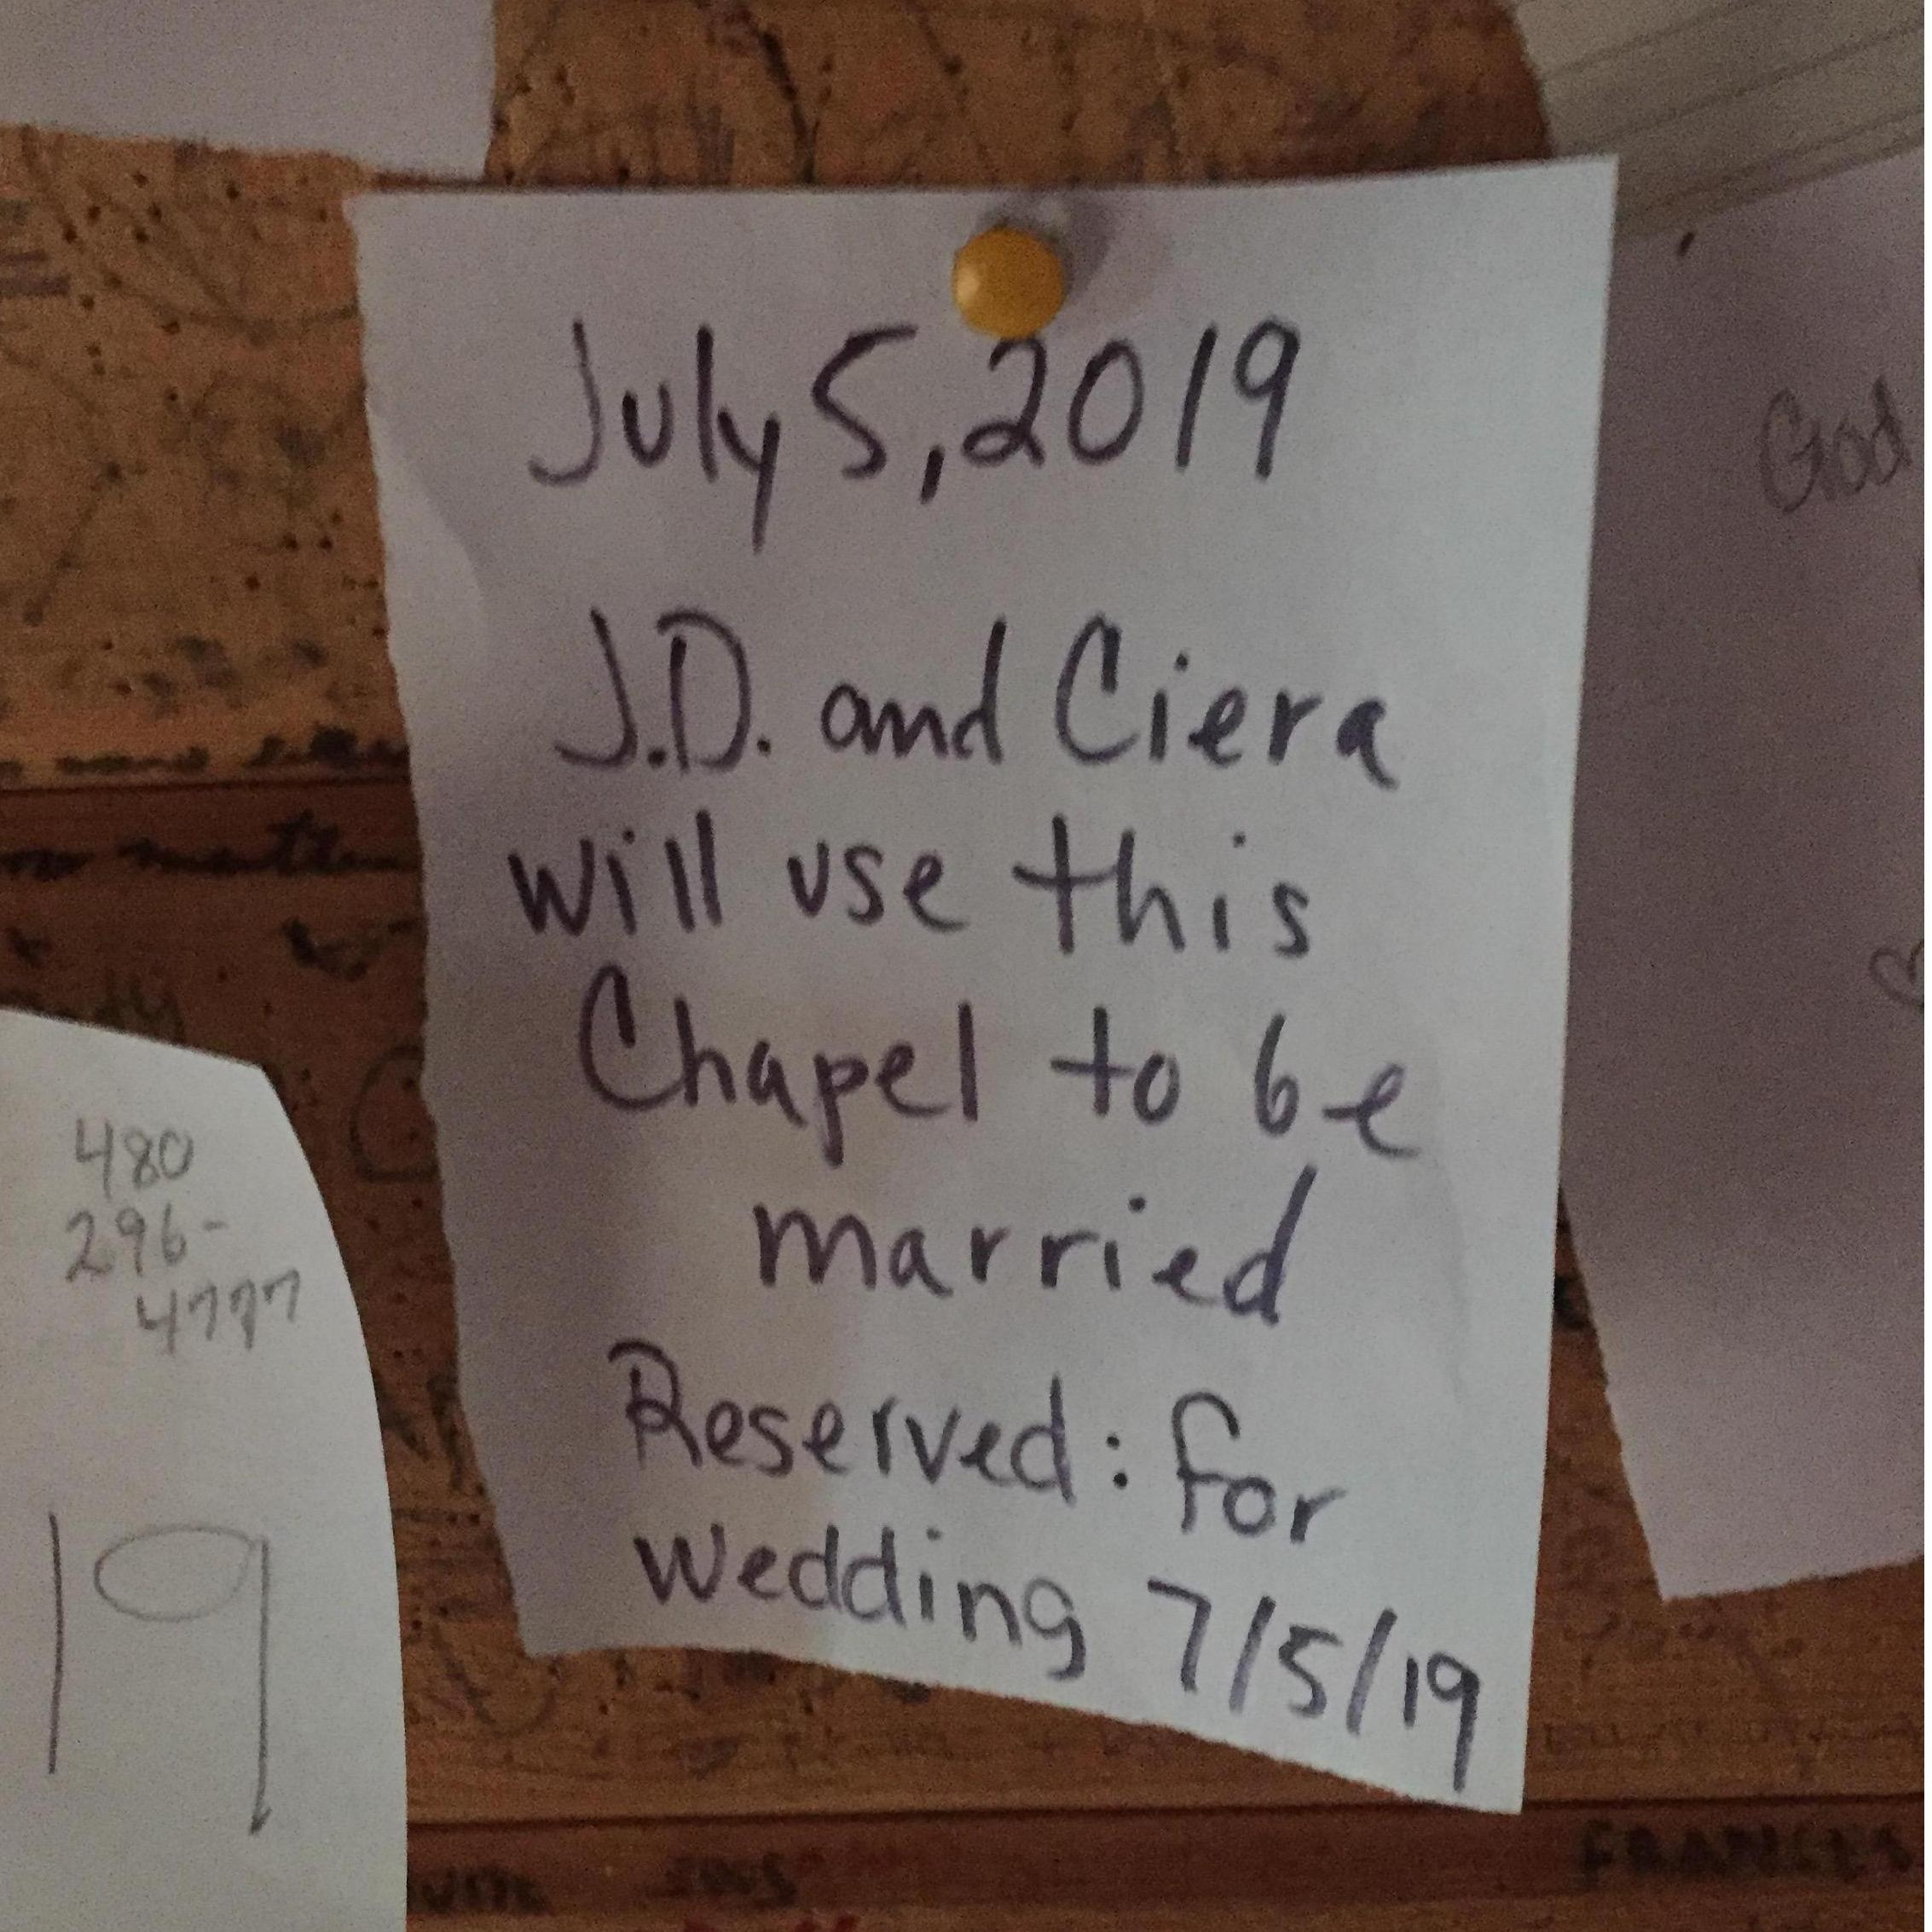 July 5, 2019
J.D. and Ciera
will use this
Chapel to be
married
Reserved: for
wedding 7/5/19
God
480
296-
4777
19
FRANCES